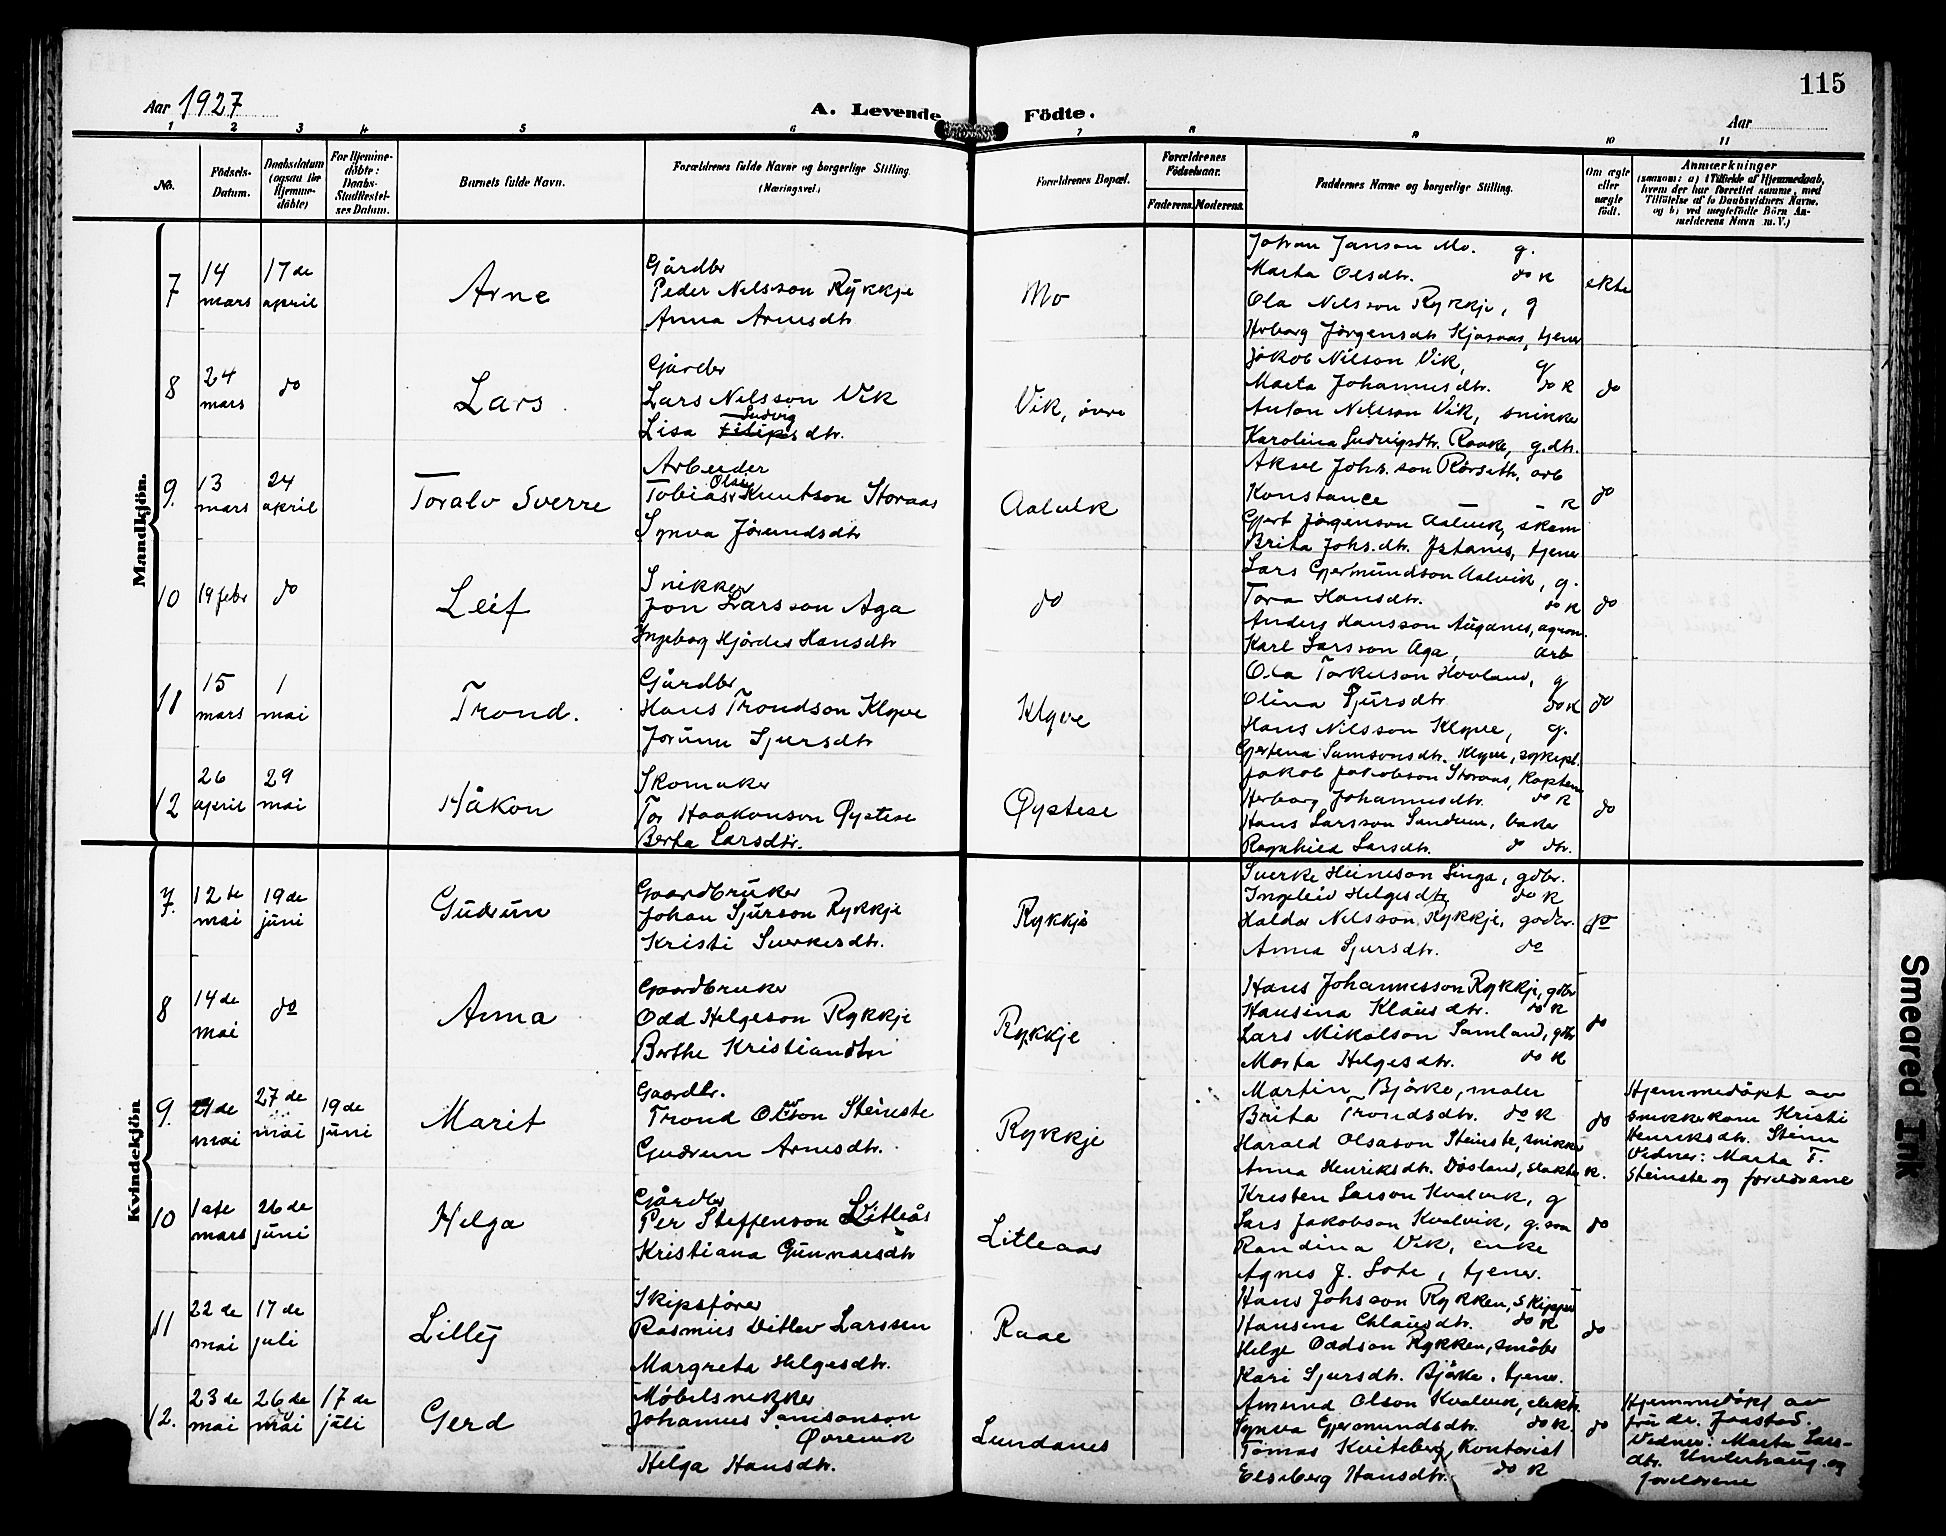 115
Aar 1927
A. Levende Födte.
Aar
1 2 3 4 5 6 7 8 9 10 11
No.
Födsels-Datum.
Daabsdatum (ogsaa for Hjemme-döbte)
For Hjemme-döbte: Daabs-Stadfæstel-ses Datum.
Barnets fulde Navn.
Forældrenes fulde Navne og borgerlige Stilling. (Næringsvei)
Forældrenes Bopæl.
Forældrenes Födselsaar.
Faderens. Moderens.
Faddernes Navne og borgerlige Stilling.
Om ægte eller uægte födt.
Anmærkninger
(saasom: a) i Tilfælde af Hjemmedaab, hvem der har forrettet samme, med Tilföielse af to Daabsvidners Navne, og b) ved uægtefödte Börn An-melderens Navn m. V.)
Mandkjön.
7
14 mars
17 de april
Arne
Gårdbr
Peder Nelsson Rykkje
Anna Arnesdtr
Mo
Johan Janson Mo. g.
Marta Olsdtr. do k
Ola Nilsson Rykkje, g
Herborg Jørgensdtr Kjosaas, tjener
ekte
8
24 mars
do
Lars
Gårdbr
Lars Nelsson Vik
Ludvig
Lisa Filipsdtr.
Vik, övre
Jakob Nilson Vik, g
Marta Johannesdtr. do k
Anton Nelsson Vik, snikke
Karolina Ludvigsdtr. Raake, g.dtr.
do
9.
13 mars
24 april
Toralv Sverre
Arbeider
Olsn
Tobias Knutson Storaas
Synva Jörundsdtr
Aalvik
Aksel Johs.son Rörseth, arb
Konstance – – k
Gjert Jørgenson Aalvik,
Brita Johs.dtr. Jstanes, tjener
do
10
19 febr
do
Leif
Snikker
Jon Larsson Aga
Ingeborg Hjördes Hansdtr
do
Lars Gjermundson Aalvik, g.
Tora Hansdtr. do k
Anders Hansson Auganes, agron.
Karl Larsson Aga, arb
do
11
15 mars
1 mai
Trond.
Gårdbr
Hans Trondson Klyve
Jorunn Sjursdtr
Klyve
Ola Torkelson Hovland, g
Olina Sjursdtr do k
Hans Nilsson Klyve, g.
Gjertena Samsonsdtr. Klyve, sykepl.
do
12
26 april
29 mai
Håkon
Skomaker
Tor Haakonson Øystese
Berta Larsdtr.
Øystese
Jakob Jakobson Storaas, Kaptein
Herborg Johannesdtr. do k
Hans Larsson Sandven, baker
Ragnhild Larsdtr. do dtr.
do
Kvindekjön
7.
12 te mai
19 de juni
Gudrun
Gaardbruker
Johan Sjurson Rykkje
Kristi Sverkesdtr.
Rykkje
Sverke Heineson Linga, gdbr.
Ingeleiv Helgesdtr do k
Haldor Nelsson Rykkje, gdbr.
Anna Sjursdtr. do
do
8
14 de mai
do
Anna
Gaardbruker
Odd Helgeson Rykkje
Berthe Kristiandtr
Rykkje
Hans Johannesson Rykkje, gdbr
Hansina Klausdtr. do k
Lars Mikalson Samland, gdbr
Marta Helgesdtr. do k
do
9.
24 de mai
27 de mai
19 de juni
Marit
Gaardbr.
Trond Olason Steinste
Gudrun Arnesdtr.
Rykkje
Martin Bjørke, maler
Brita Trondsdtr. do k
Harald Olsason Steinste, snikker
Anna Henriksdtr. Dösland, slakter k.
do
Hjemmedöpt av
snikkerkone Kristi
Henriksdtr. Steine
Vedner: Marta T.
Steinste og foreldrene
10
1 ste mars
26 de juni
Helga
Gårdbr
Per Steffenson Litleås
Kristiana Gunnarsdtr
Litleaas
Kristen Larson Kvalvik, g
Lars Jakobson Kvalvik, g.søn
Randina Vik, enke
Agnes J. Sote, tjener.
do
11
22 de mai
17 de juli
Lilly
Skipsfører
Rasmus Ditlev Larssen
Margreta Helgesdtr.
Raae
Hans Johsson Rykken, Skipper
Hansina Chlausdtr. do k
Helge Oddson Rykken, småbr
Kari Sjursdtr. Bjørke, tjener.
do
12.
23 de mai
26 de mai
17 de juli
Gerd
Møbelsnekker
Johannes Samsonson
Øvrevik
Helga Hansdtr.
Lundanes
Amund Olson Kvalvik, elektr.
Synva Gjermundsdtr. do k.
Tomas Kviteberg, Kontorist
Elseberg Hansdtr. do k
do
Hjemmedöpt av
frü dr. Jaastad.
Vedner: Marta Lars-
dtr. Underhaug og
foreldrene
Smeared Ink